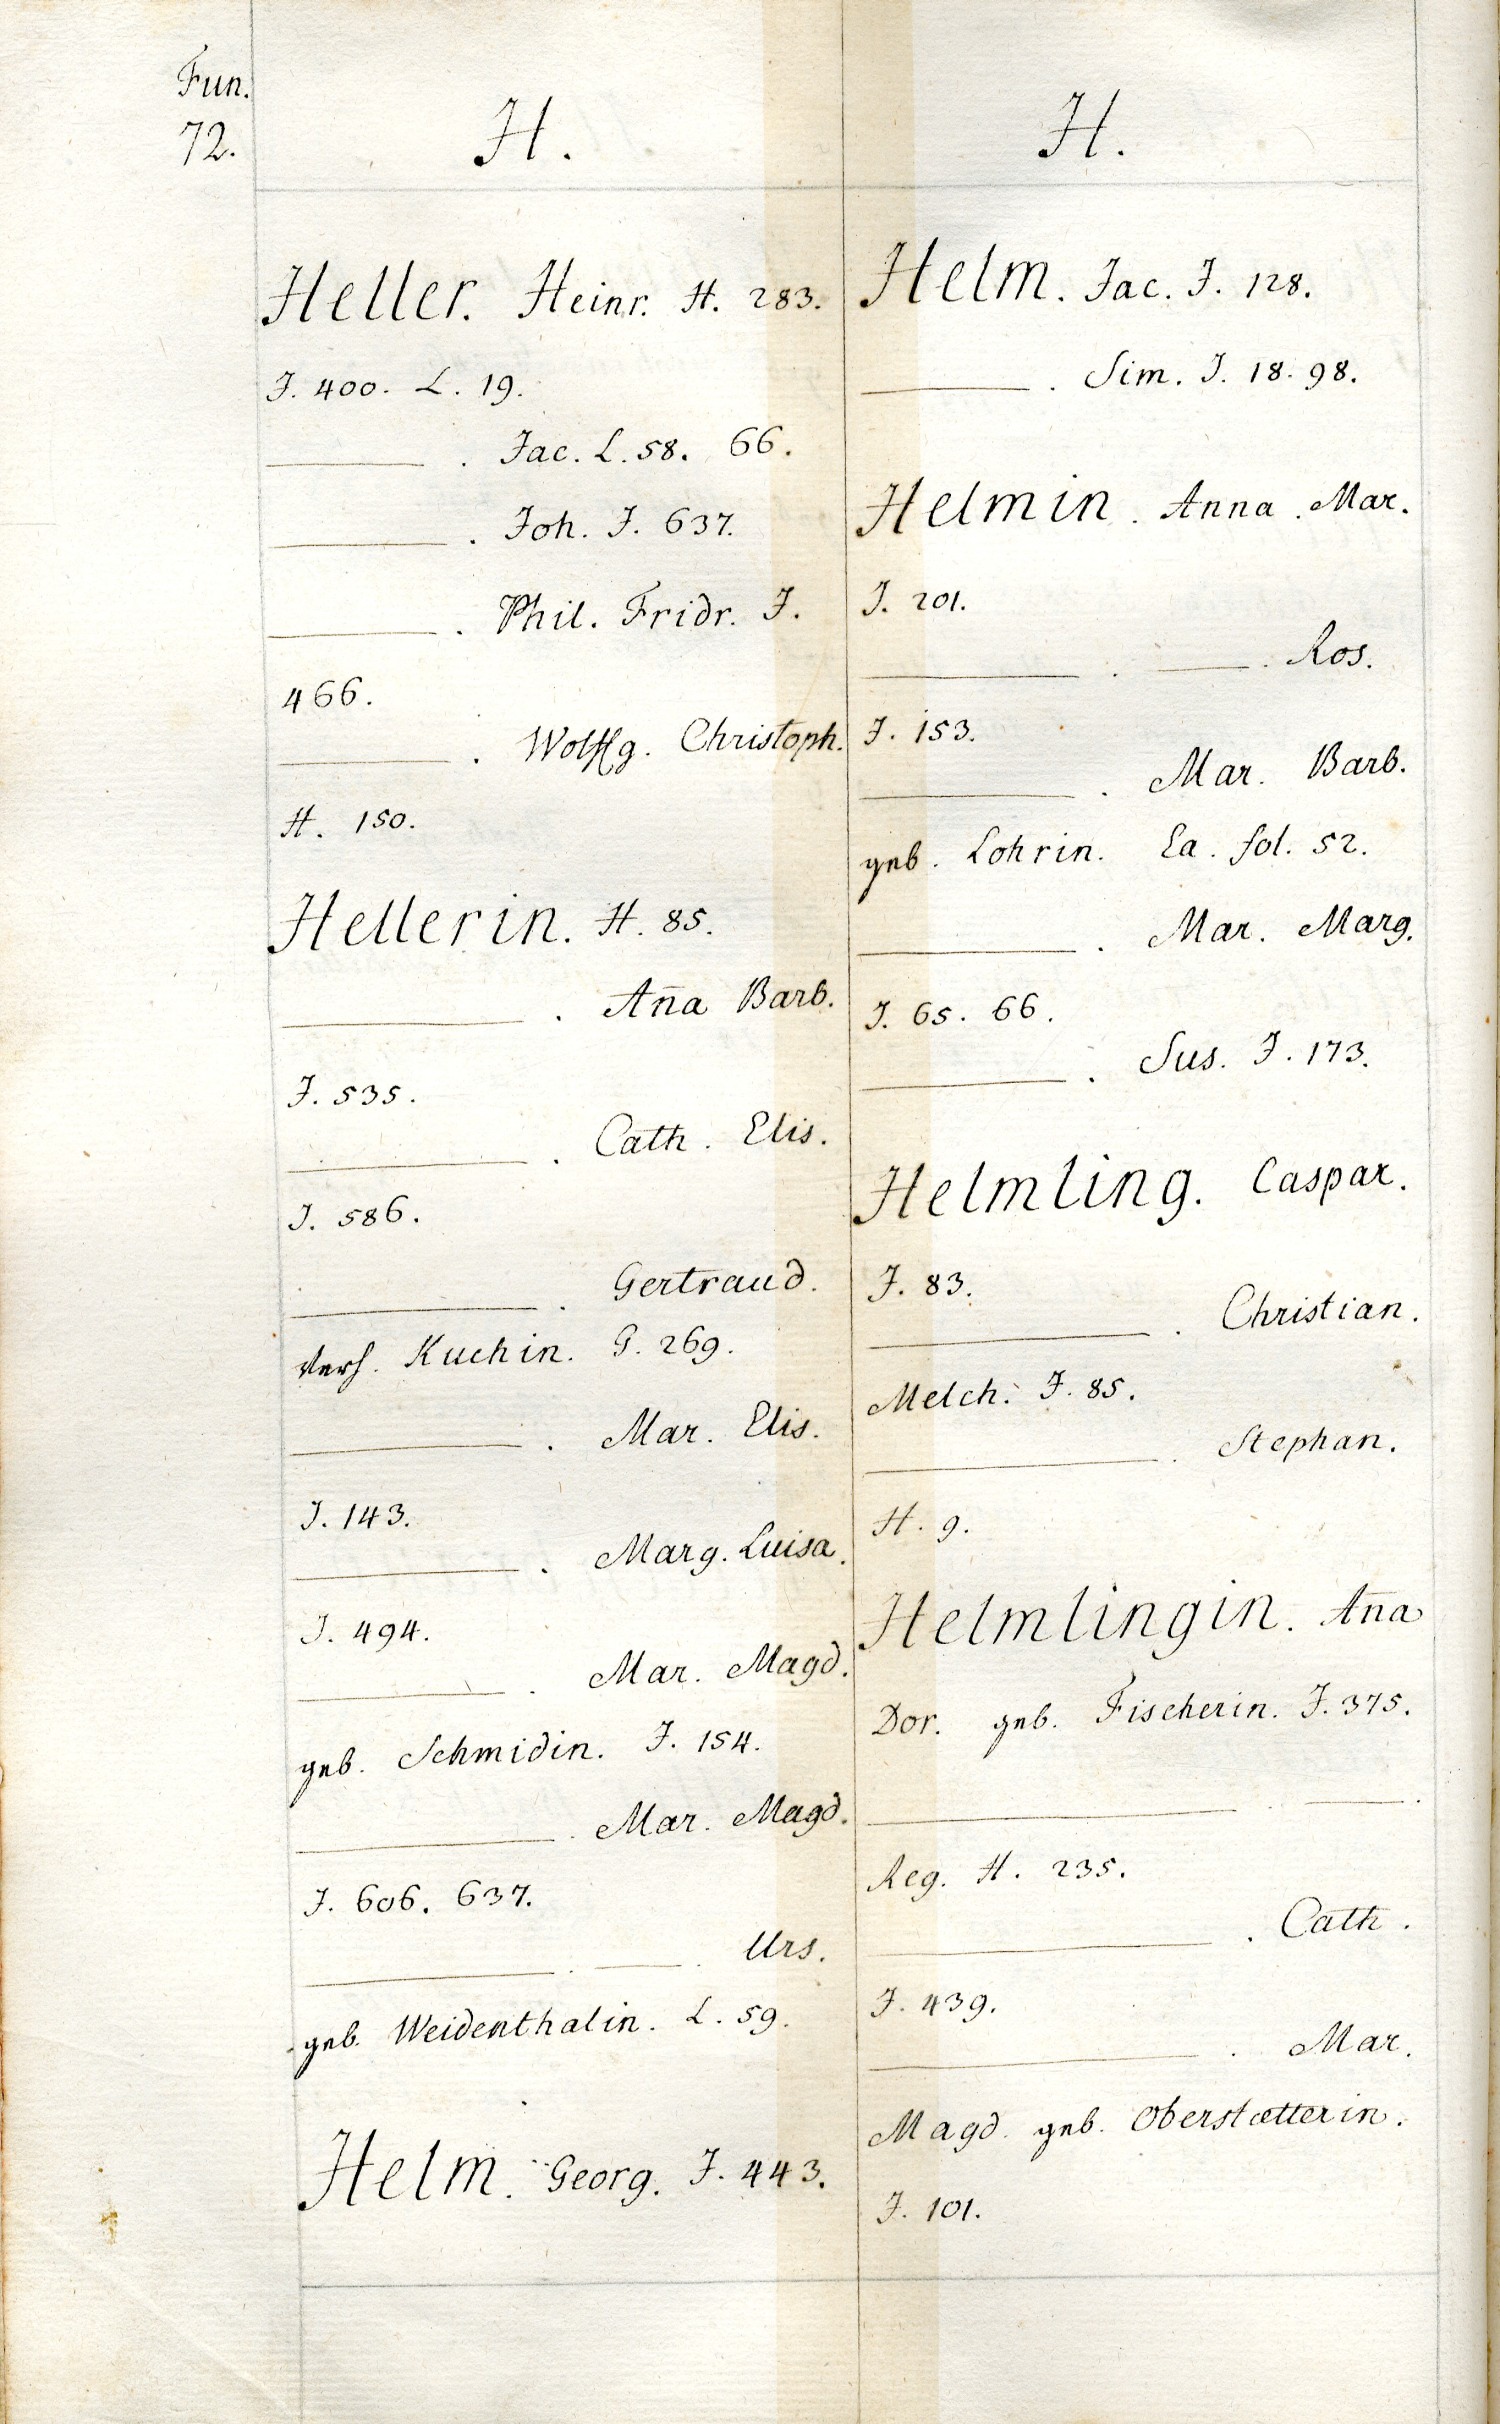 Fun.
72.
H.
Heller. Heinr. H. 283.
J. 400. L. 19.
———. Jac. L. 58. 66.
———. Joh. J. 637.
———. Phil. Fridr. J.
466.
———. Wolffg. Christoph.
H. 150.
Hellerin. H. 85.
———. Aña Barb.
J. 535.
———. Cath. Elis.
J. 586.
———. Gertraud.
verh. Kuchin. G. 269.
———. Mar. Elis.
J. 143.
———. Marg. Luisa.
J. 494.
———. Mar. Magd.
geb. Schmidin. J. 154.
———. Mar. Magd.
J. 606. 637.
———. ———. Urs.
geb. Weidenthalin. L. 59.
Helm. Georg. J. 443.
H.
Helm. Jac. J. 128.
———. Sim. J. 18. 98.
Helmin. Anna. Mar.
J. 201.
———. ———. Ros.
J. 153.
———. Mar. Barb.
geb. Lohrin. Ea. fol. 52.
———. Mar. Marg.
J. 65. 66.
———. Sus. J. 173.
Helmling. Caspar.
J. 83.
———. Christian.
Melch. J. 85.
———. Stephan.
H. 9.
Helmlingin. Aña
Dor. geb. Fischerin. J. 375.
———. ———.
Reg. H. 235.
———. Cath.
J. 439.
———. Mar.
Magd. geb. Oberstætterin.
J. 101.